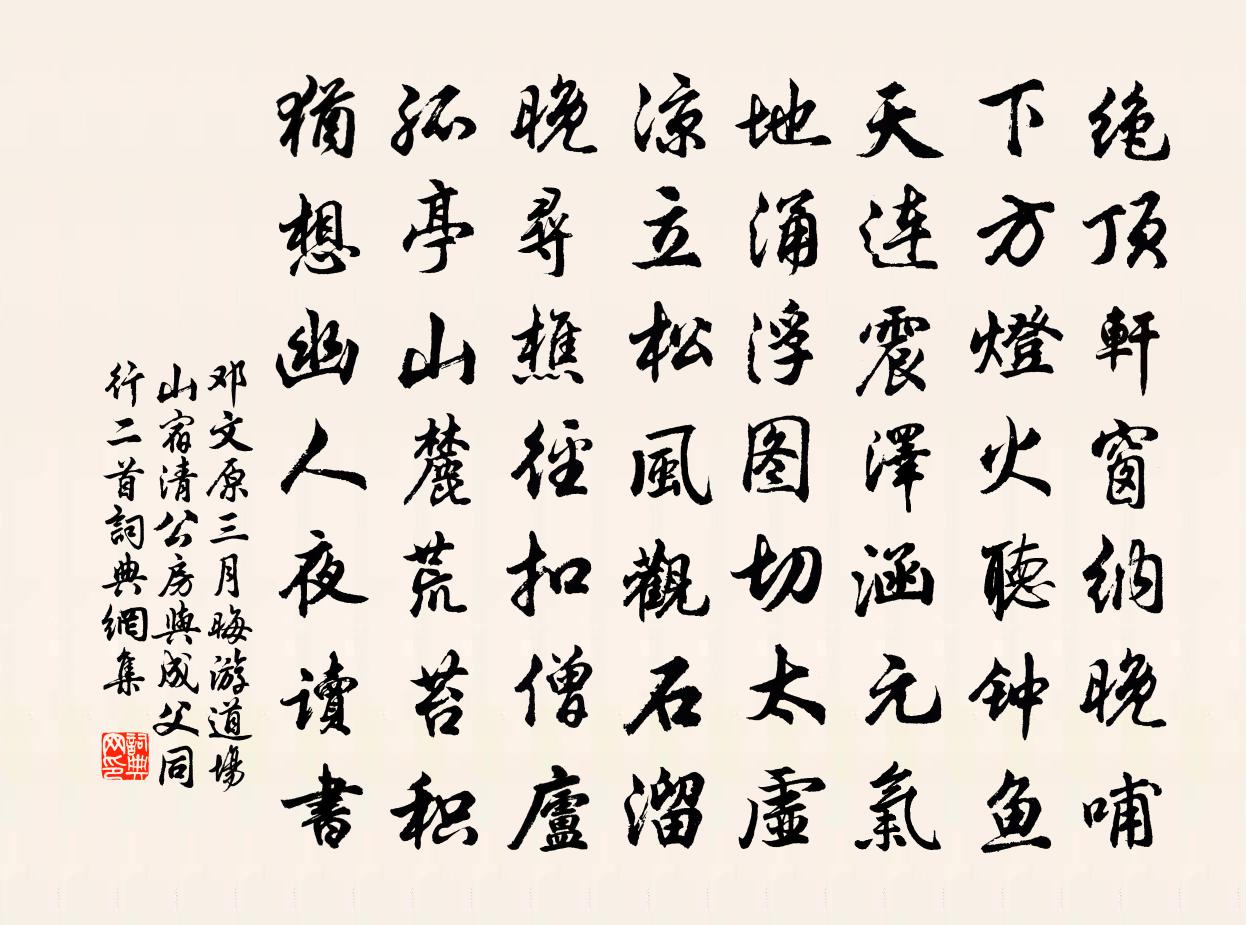 绝顶軒窗纳晚晡
下方燈火聽钟鱼
天连震澤涵元氣
地涌浮图切太虛
凉立松風觀石溜
晚尋樵徑扣僧廬
孤亭山麓荒苔积
猶想幽人夜读書
邓文原三月晦游道場
山宿清公房與成父同
行二首詞典網集
詞典
网印